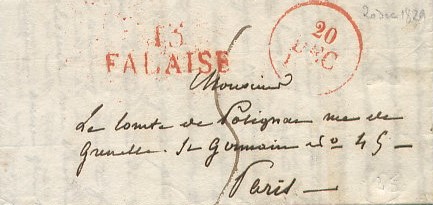 20 Dec 1829
13
FALAISE
20
DEC
5
Monsieur
Le Comte de Polignac rue de
Grenelle St Germain No 45 –
Paris –